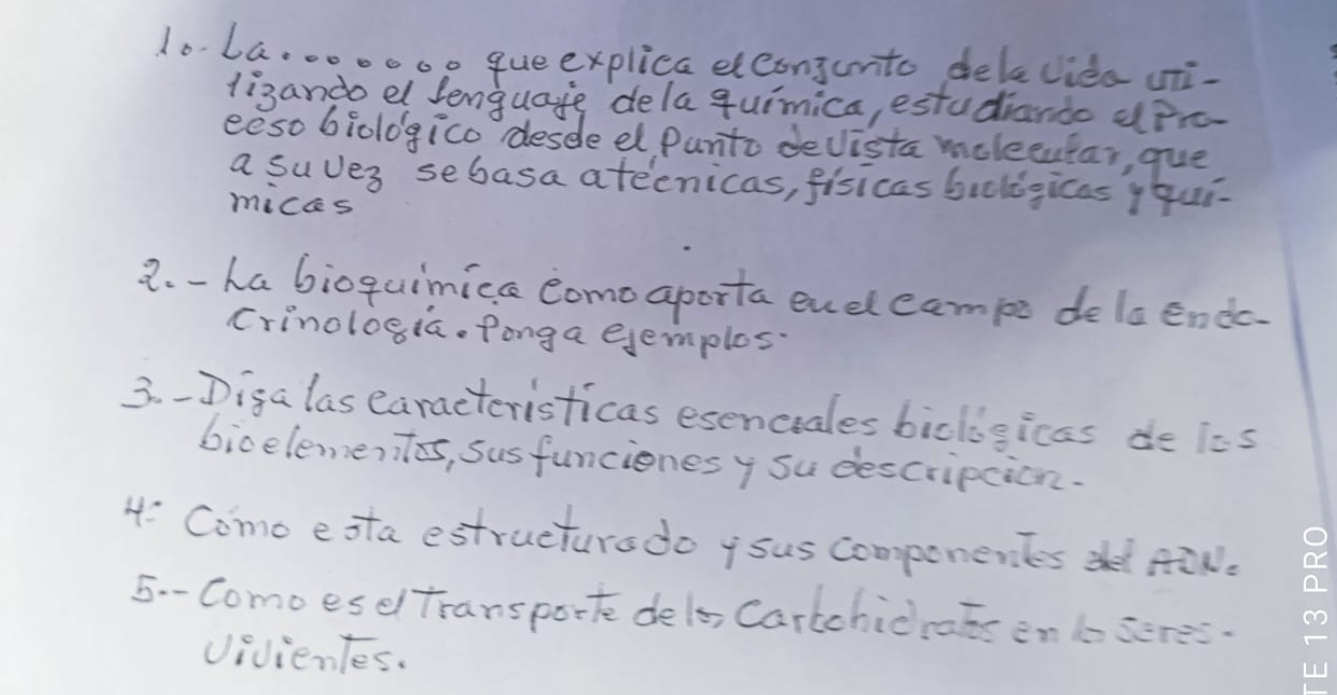 1.- La........ que explica el conjunto de la vida uti-
lizando el lenguaje de la química, estudiando el Pro-
ceso biológico desde el Punto de vista molecular, que
a su vez se basa a técnicas, físicas biológicas y quí-
micas
2.- La bioquímica como aporta en el campo de la endo-
crinología. Ponga ejemplos.
3.- Diga las características esenciales biológicas de los
bioelementos, sus funciones y su descripción.
4.- Cómo esta estructurado y sus componentes del ADN.
5.- Como es el Transporte de los Carbohidratos en los seres.
Vivientes.
TE 13 PRO